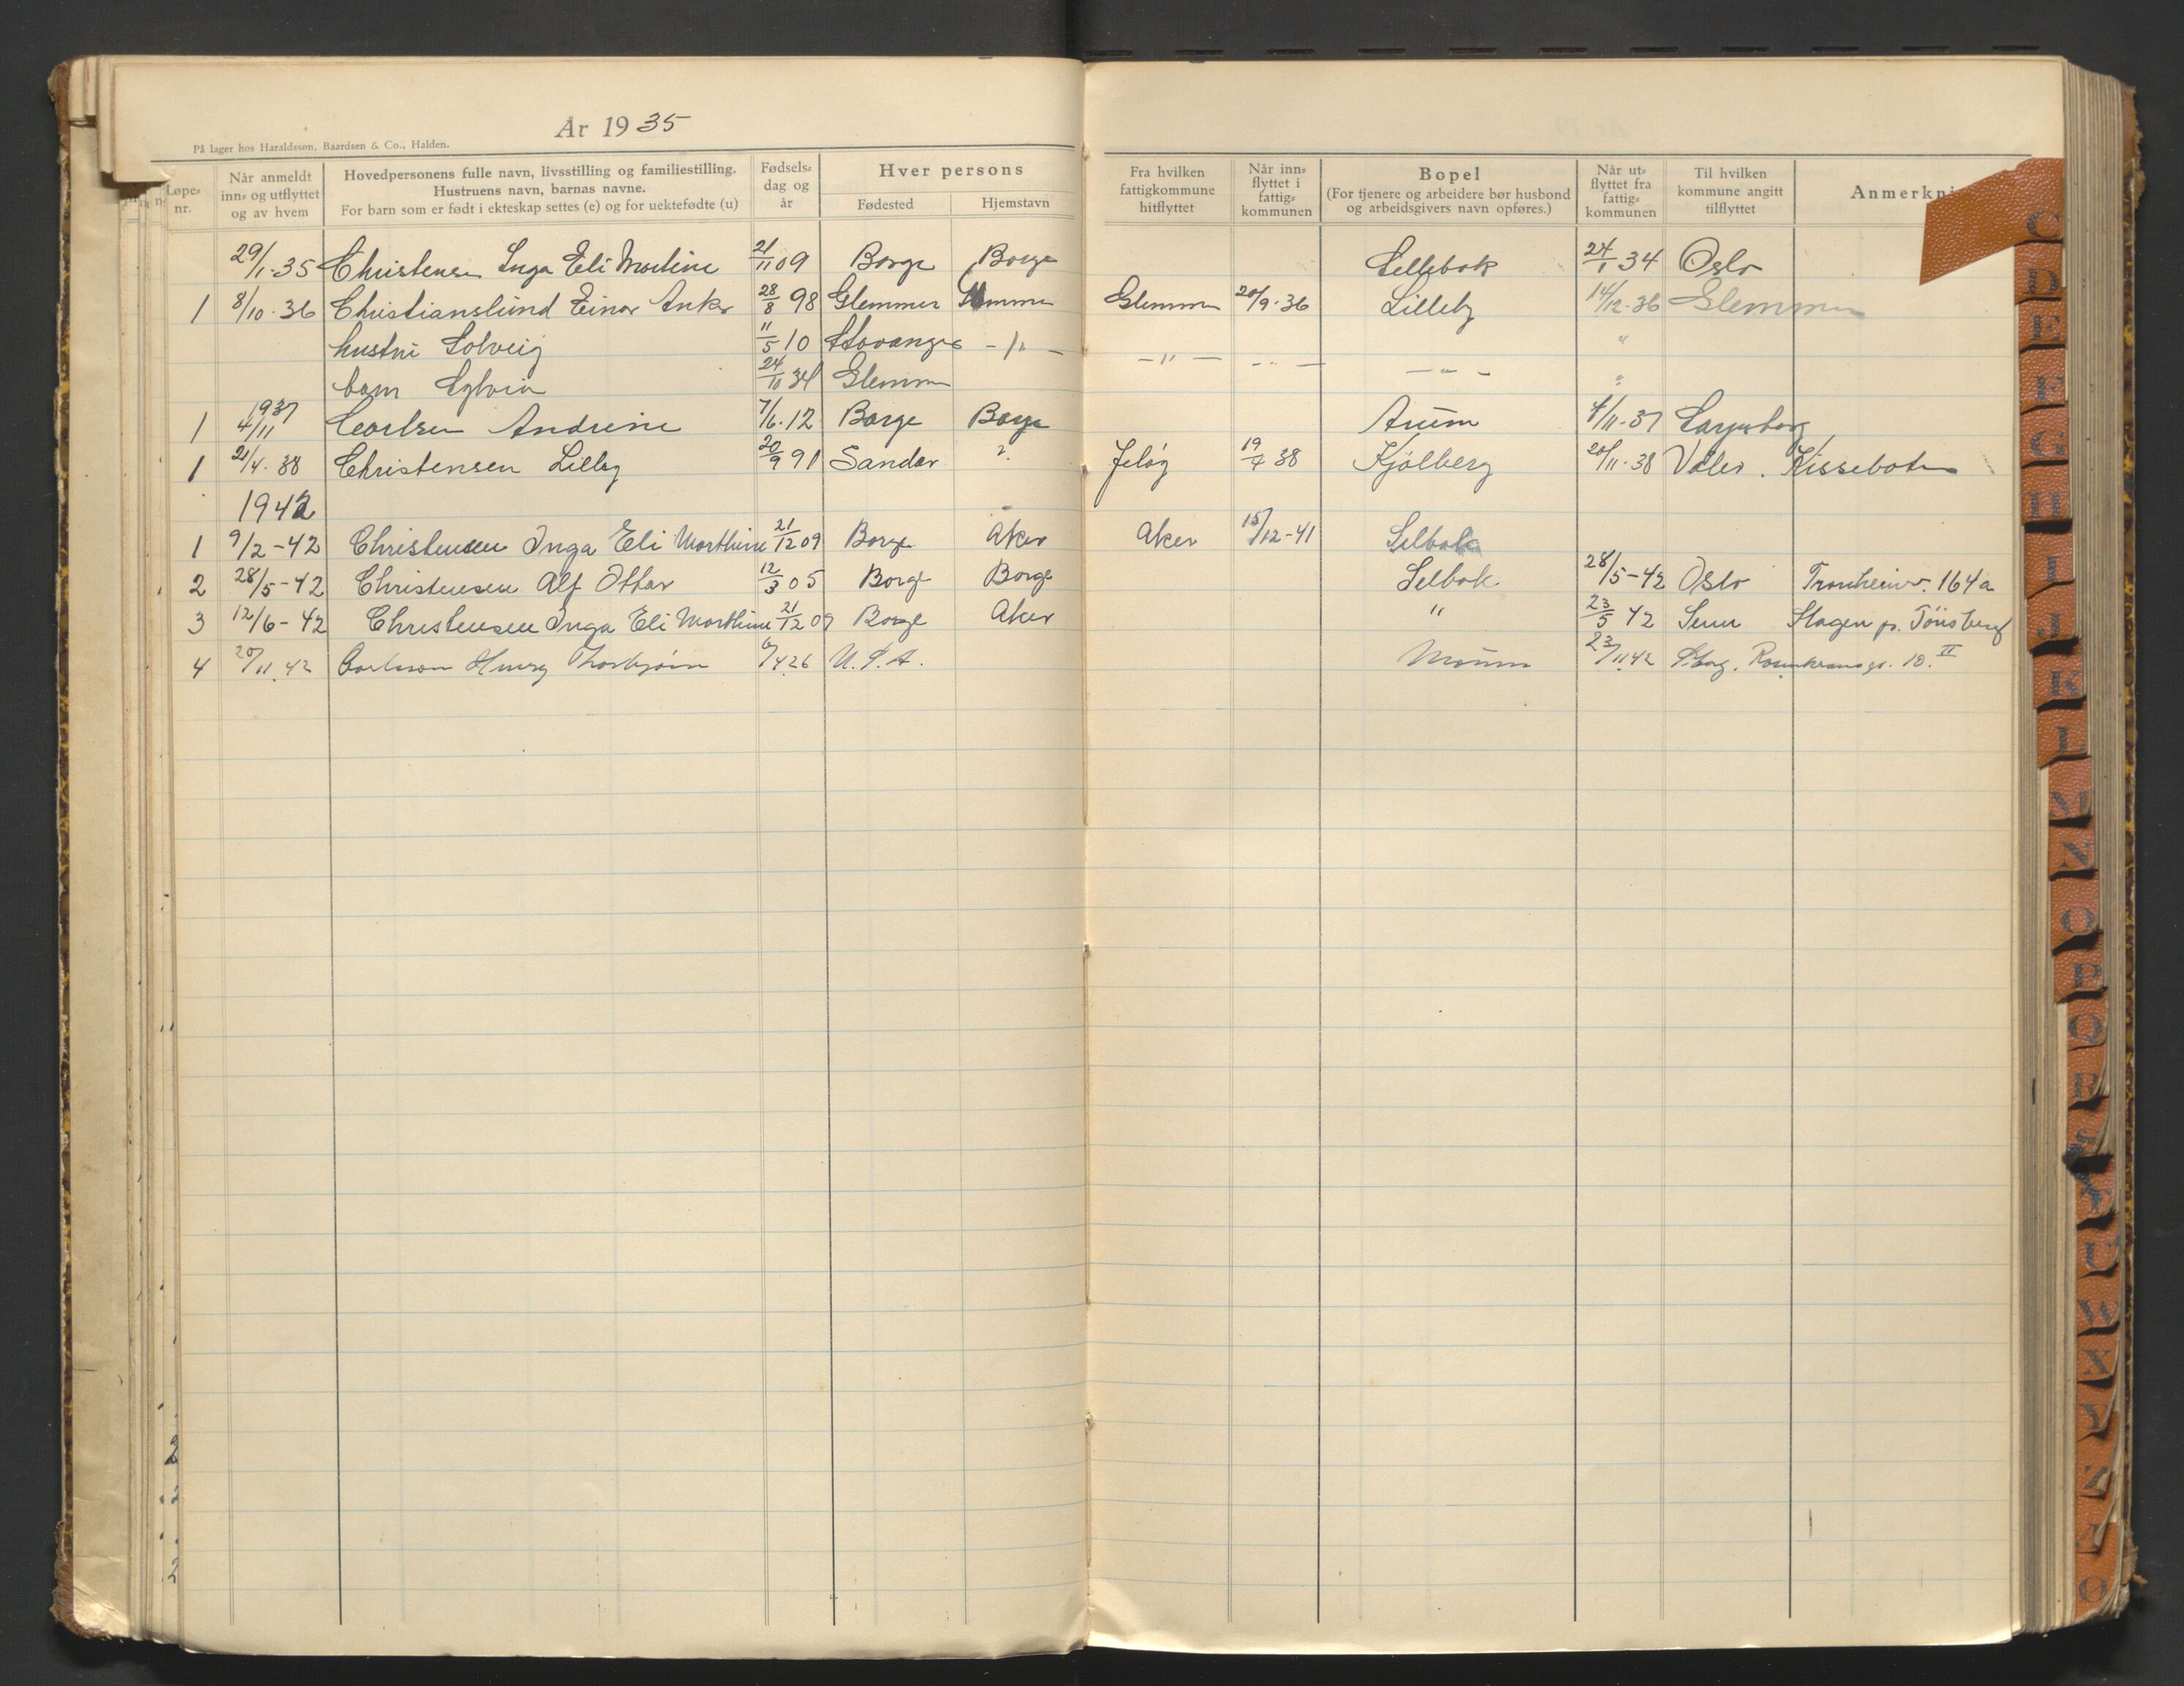 År 1935
På lager hos Haraldssøn, Baardsen & Co., Halden.
Løpe-nr. | Når anmeldt inn- og utflyttet og av hvem | Hovedpersonens fulle navn, livsstilling og familiestilling. Hustruens navn, barnas navne. For barn som er født i ekteskap settes (e) og for uektefødte (u) | Fødsels-dag og år | Hver persons Fødested | Hjemstavn | Fra hvilken fattigkommune hitflyttet | Når inn-flyttet i fattig-kommunen | Bopel (For tjenere og arbeidere bør husbond og arbeidsgivers navn opføres.) | Når ut-flyttet fra fattig-kommunen | Til hvilken kommune angitt tilflyttet | Anmerkni
29/1-35 Christensen Inga Eli Martine 21/11 09 Borge Borge Sellebak 24/1 34 Oslo
1 8/10-36 Christianslund Einar Anker 28/8 98 Glemmen Glemmen Glemmen 20/9-36 Lilleby 14/12-36 Glemmen
hustru Solveig 11/5 10 Stavanger -"- -"- -"- -"- "
barn Sylvia 24/11 34 Glemmen "
1 1937 4/11 Carlsen Andrine 7/6-12 Borge Borge Årum 4/11-37 Sarpsborg
1 21/4-38 Christensen Lilly 20/9 91 Sandar ? Jeløy 19/4 38 Kjølberg 20/11-38 Våler. Kissebotn
1942
1 9/2-42 Christensen Inga Eli Marthine 21/12 09 Borge Aker Aker 15/12-41 Selbak
2 28/5-42 Christensen Alf Ottar 12/3 05 Borge Borge Selbak 28/5-42 Oslo Tronheimsv. 164a
3 12/6-42 Christensen Inga Eli Marthine 21/12 09 Borge Aker " 23/5 42 Sem Slagen pr. Tönsberg
4 20/11.42 Carlsson Henry Thorbjørn 6/4.26 U.S.A. Moum 23/11 42 S.borg, Rosenkransgt. 10.II
C
D
E
F
G
H
I
J
K
L
M
N
O
P
Q
R
S
T
U
W
X
Y
Z
Ø